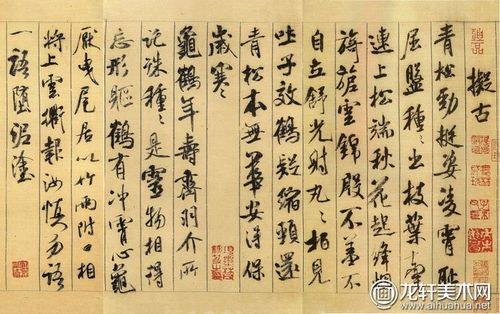 擬古
青松勁挺姿凌霄恥
屈盤種々出枝葉牽
連上松端秋花起絳烟
旖旎雲錦殷不羞不
自立舒光射丸々柏見
吐子效鶴疑縮頸還
青松本無華安得保
歲寒
龜鶴年壽齊羽介所
託殊種々是靈物相得
忘形軀鶴有沖霄心龜
厭曳尾居以竹兩附口相
將上雲衢報汝慎勿語
一語墮泥塗
龙轩美术网